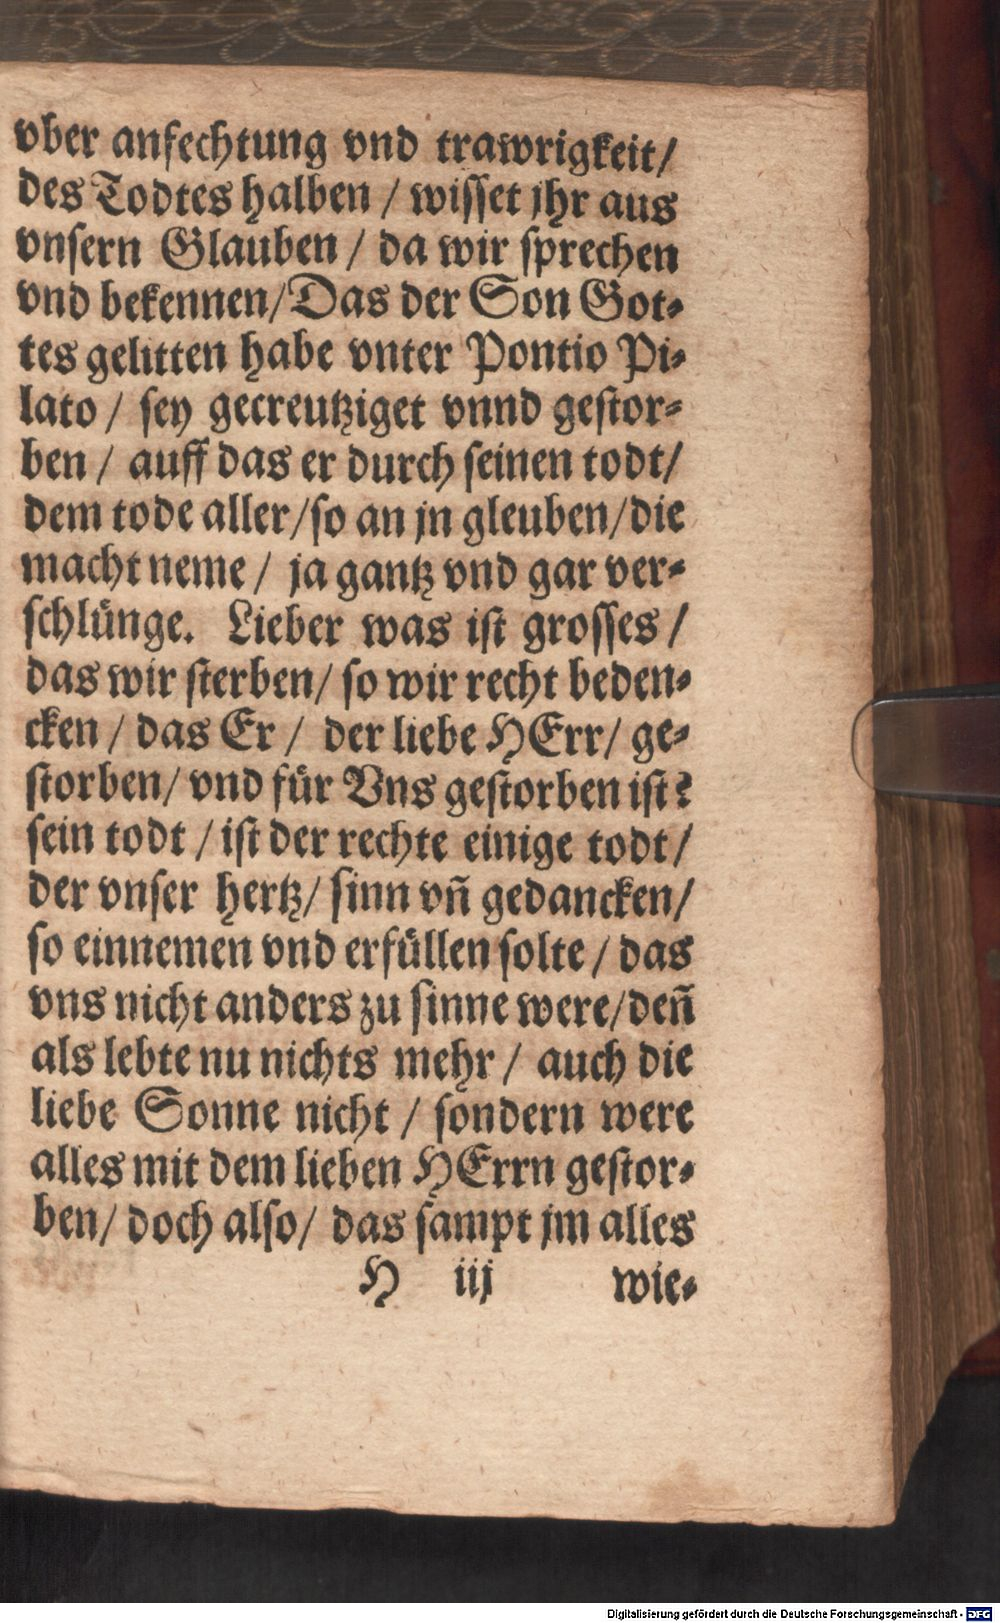 vber anfechtung vnd trawrigkeit/
des Todtes halben / wisset jhr aus
vnsern Glauben / da wir sprechen
vnd bekennen/ Das der Son Got-
tes gelitten habe vnter Pontio Pi-
lato / sey gecreutziget vnnd gestor-
ben / auff das er durch seinen todt/
dem tode aller/ so an jn gleuben/ die
macht neme / ja gantz vnd gar ver-
schlünge. Lieber was ist grosses /
das wir sterben/ so wir recht beden-
cken / das Er / der liebe HErr/ ge-
storben/ vnd für Vns gestorben ist?
sein todt / ist der rechte einige todt/
der vnser hertz/ sinn vñ gedancken/
so einnemen vnd erfüllen solte / das
vns nicht anders zu sinne were/ deñ
als lebte nu nichts mehr / auch die
liebe Sonne nicht / sondern were
alles mit dem lieben HErrn gestor-
ben/ doch also/ das sampt jm alles
H iij wie-
Digitalisierung gefördert durch die Deutsche Forschungsgemeinschaft - DFG